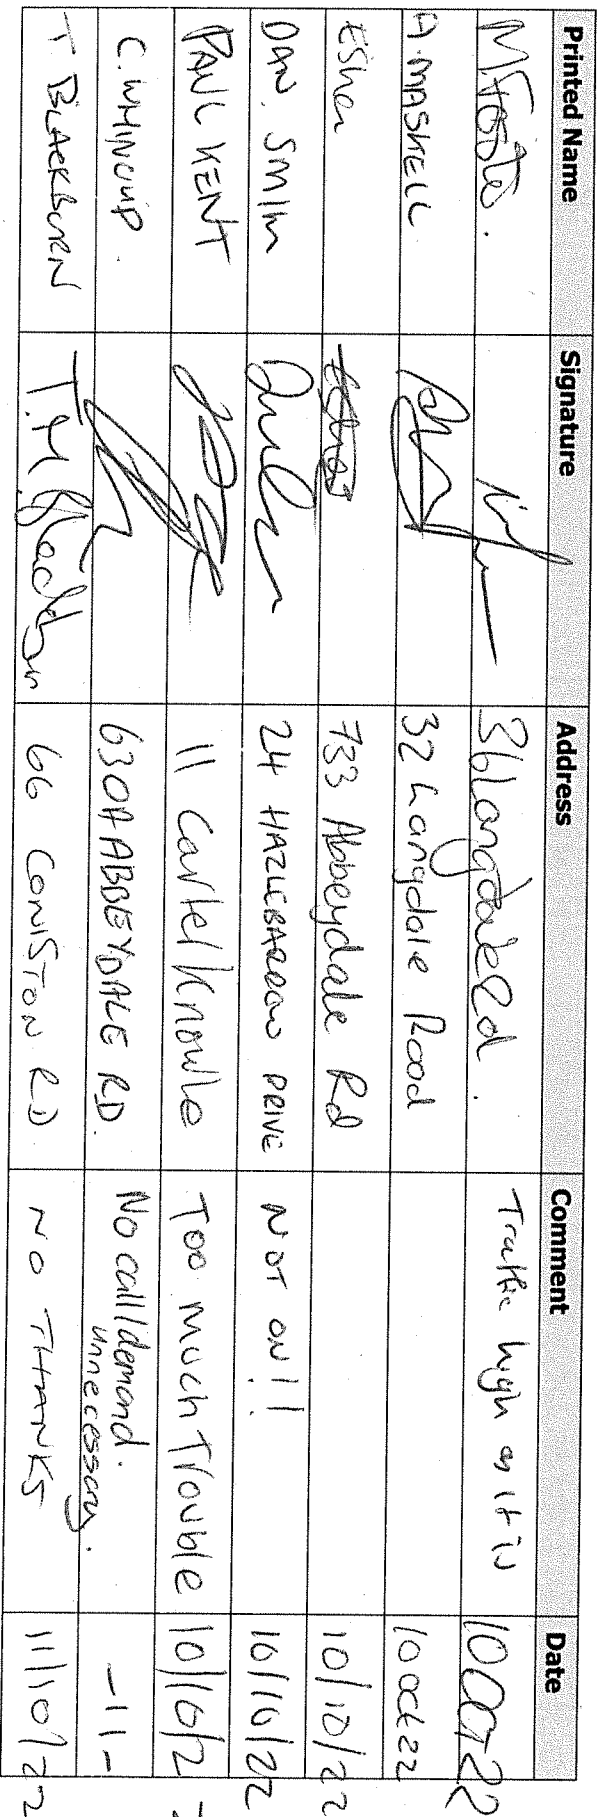 Printed Name Signature Address Comment Date
M. Foster. 36 Langdale Rd. Traffic high as it is 10 Oct 22
A. MASKELL 32 Langdale Road 10 Oct 22
Esher 733 Abbeydale Rd 10/10/22
DAN. SMITH 24 HAZLEBARROW DRIVE NOT ON!! 10/10/22
PAUL KENT 11 Carter Knowle Too much Trouble 10/10/2
C. WHINCUP. 630A ABBEYDALE RD. No call/demand. -11-
unnecessary.
T BLACKBURN T.M Blackburn 66 CONISTON RD NO THANKS 11/10/22